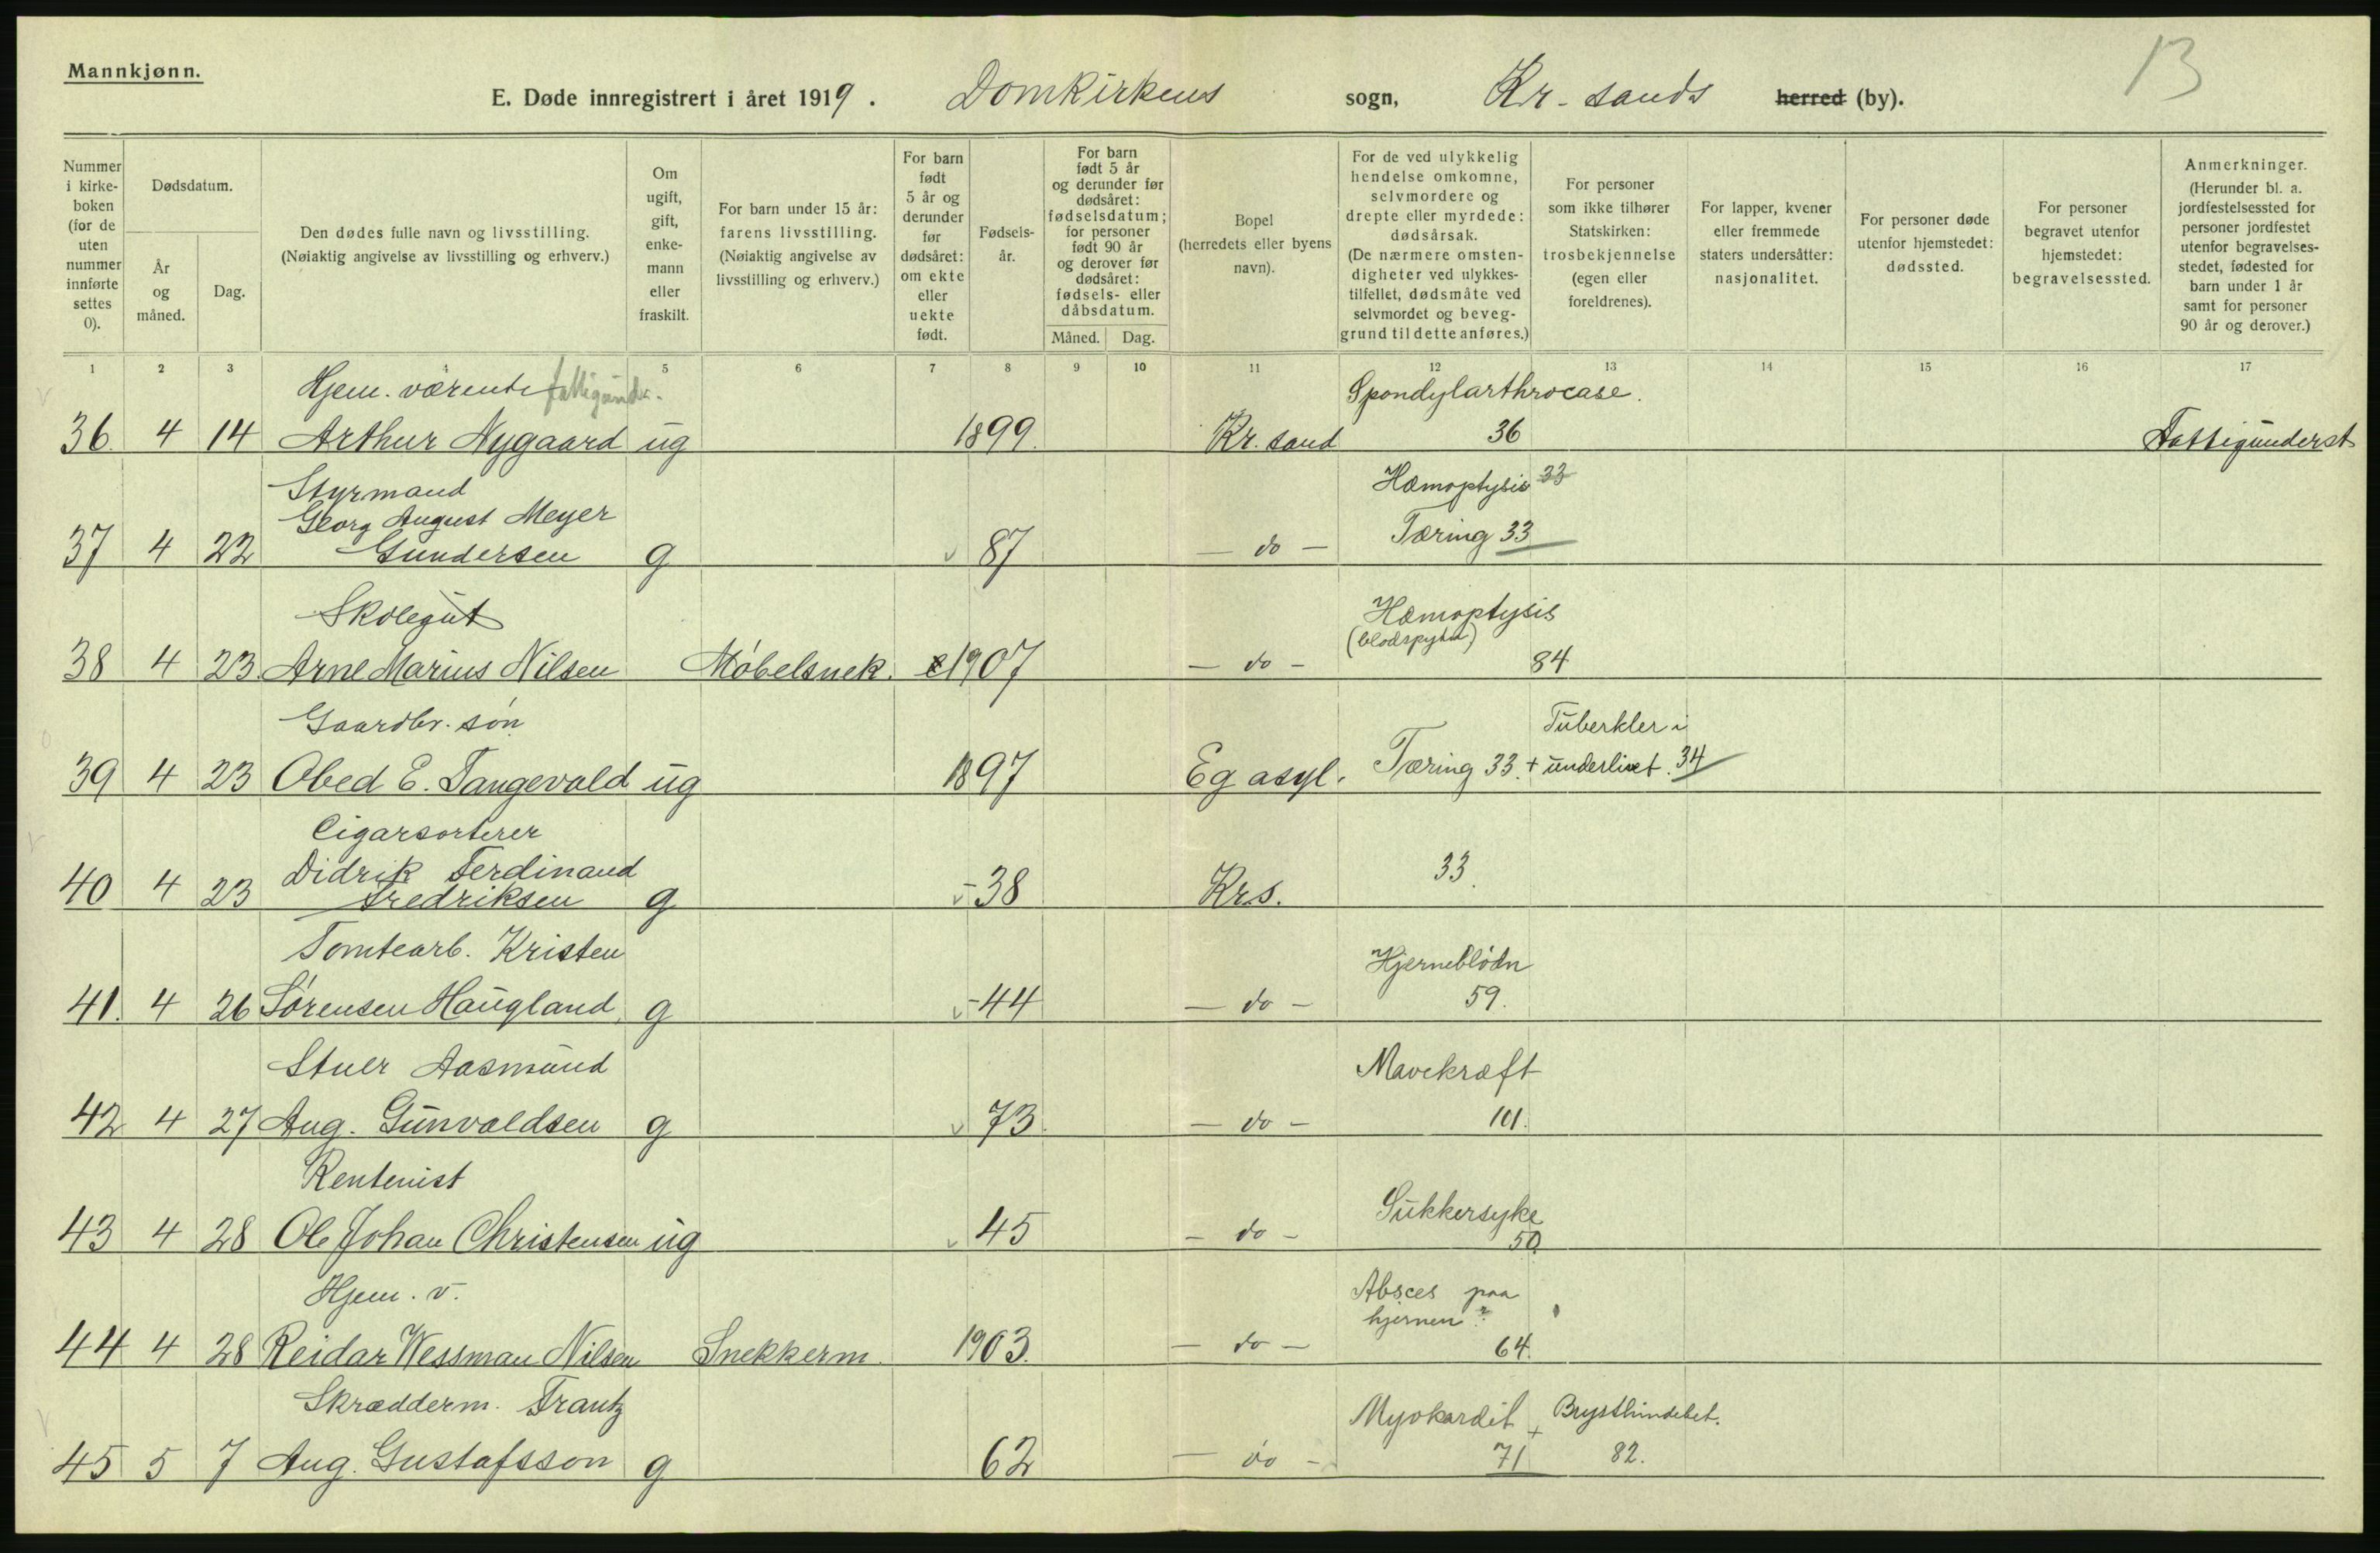 Mannkjønn.
13
E. Døde innregistrert i året 1919. Domkirkens sogn, Kr-sands herred (by).
Nummer i kirkeboken (for de uten nummer innførte settes 0).
Dødsdatum.
År og måned.
Dag.
Den dødes fulle navn og livsstilling.
(Nøiaktig angivelse av livsstilling og erhverv.)
Om ugift, gift, enkemann eller fraskilt.
For barn under 15 år: farens livsstilling. (Nøiaktig angivelse av livsstilling og erhverv.)
For barn født 5 år og derunder før dødsåret: om ekte eller uekte født.
Fødselsår.
For barn født 5 år og derunder før dødsåret: fødselsdatum; for personer født 90 år og derover før dødsåret: fødsels- eller dåbsdatum.
Måned. Dag.
Bopel (herredets eller byens navn).
For de ved ulykkelig hendelse omkomne, selvmordere og drepte eller myrdede: dødsårsak. (De nærmere omstendigheter ved ulykkestilfellet, dødsmåte ved selvmordet og beveggrund til dette anføres.)
For personer som ikke tilhører Statskirken: trosbekjennelse (egen eller foreldrenes).
For lapper, kvener eller fremmede staters undersåtter: nasjonalitet.
For personer døde utenfor hjemstedet: dødssted.
For personer begravet utenfor hjemstedet: begravelsessted.
Anmerkninger. (Herunder bl. a. jordfestelsessted for personer jordfestet utenfor begravelsesstedet, fødested for barn under 1 år samt for personer 90 år og derover.)
1 2 3 4 5 6 7 8 9 10 11 12 13 14 15 16 17
Hjem. værende fattigunder. Spondylarthrocase.
36. 4 14 Arthur Nygaard ug 1899. Kr. sand 36 Fattigunderst
Styrmand Hæmoptysis 33
Georg August Meyer
37 4 22 Gundersen g 87 - do - Tæring 33
Skolegut Hæmoptysis
(blodspytn)
38 4 23. Arne Marius Nilsen Møbelsnek. e 1907 - do - 84
Gaardbr. søn Tuberkler i
39 4 23 Obed E. Tangevald ug 1897 Eg asyl. Tæring 33. + underlivet. 34
Cigarsorterer
Didrik Ferdinand 33.
40 4 23 Fredriksen g -38 Krs.
Tomtearb. Kristen Hjerneblødn
41. 4 26 Sørensen Haugland g -44 - do - 59.
Stuer Aasmund Mavekræft
42 4 27 Aug. Gunvaldsen g 73. - do - 101.
Rentenist Sukkersyke
43 4 28 Ole Johan Christensen ug 45 - do - 50.
Hjem. v. Absces paa
hjernen?
44 4 28 Reidar Wessman Nilsen Snekkerm. 1903. - do - 64.
Skrædderm. Frantz Myokardit + Brysthindebet.
45 5 7 Aug. Gustafsson g 62 - do - 71 82.